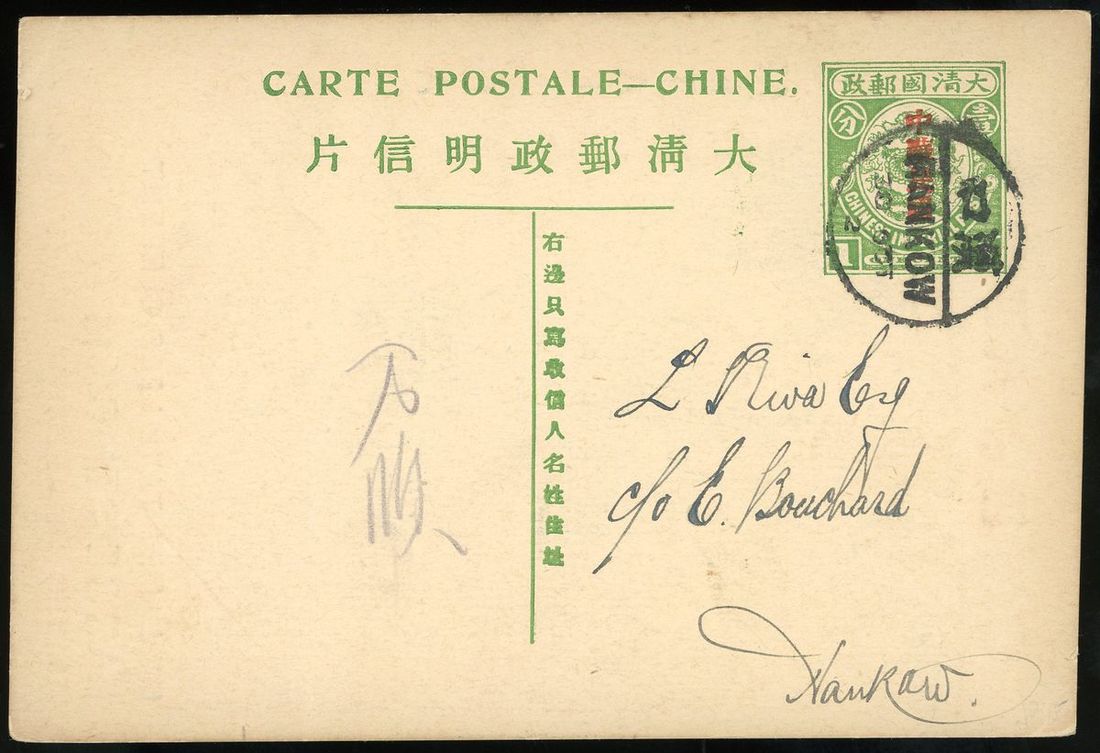 CARTE POSTALE—CHINE.
大清郵政明信片
大清國郵政
壹分
CHINESE IM
1
中華
HANKOW
右邊只寫收信人名姓住址
L Riva Esq
c/o E. Bouchard
Hankow.